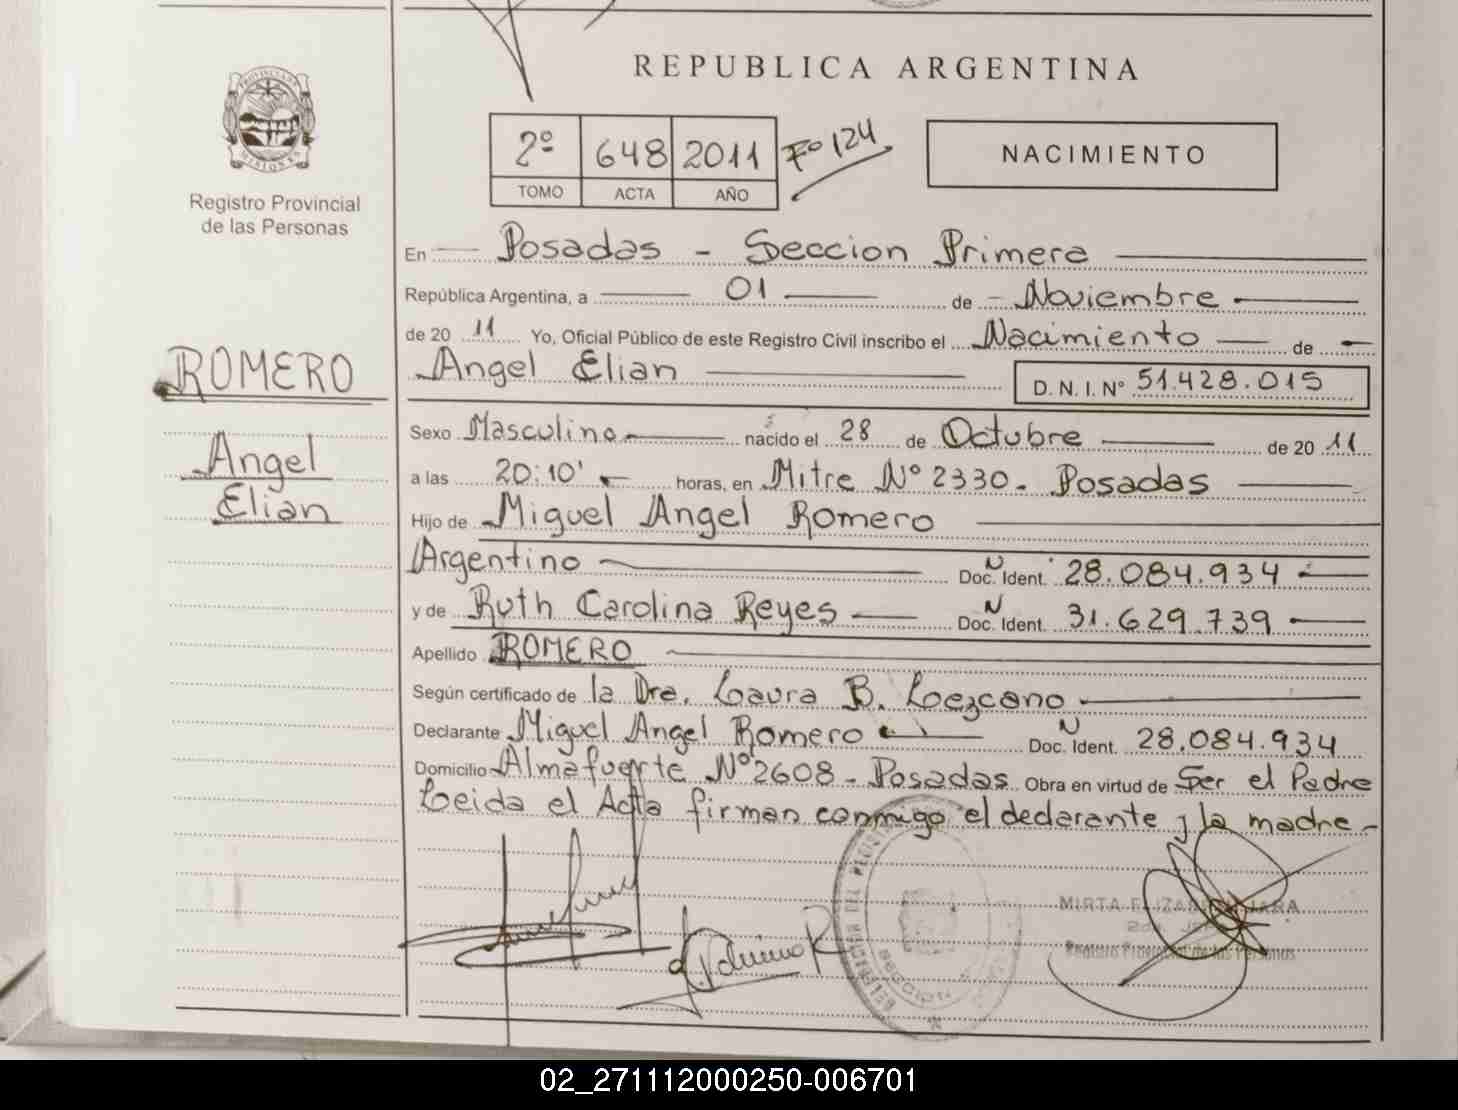 REPUBLICA ARGENTINA
PROVINCIA DE MISIONES
Registro Provincial
de las Personas
2º 648 2011 Fº 124
TOMO ACTA AÑO
NACIMIENTO
En Posadas - Seccion Primera
República Argentina, a 01 de Noviembre
de 20 11 Yo, Oficial Público de este Registro Civil inscribo el Nacimiento de
Angel Elian D. N. I. Nº 51.428.015
ROMERO
Angel
Elian
Sexo Masculino nacido el 28 de Octubre de 20 11
a las 20:10' horas, en Mitre Nº 2330. Posadas
Hijo de Miguel Angel Romero
Argentino Doc. Ident. N 28.084.934
y de Ruth Carolina Reyes Doc. Ident. N 31.629.739
Apellido ROMERO
Según certificado de la Dra. Laura B. Lezcano
Declarante Miguel Angel Romero Doc. Ident. N 28.084.934
Domicilio Almafuerte Nº 2608 - Posadas Obra en virtud de Ser el Padre
Leida el Acta firman conmigo el declarante y la madre -
MIRTA ELIZABETH JARA
Registro Provincial de las Personas
SECCION
02_271112000250-006701